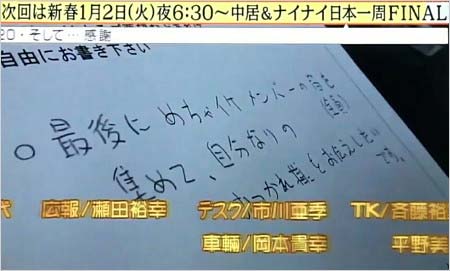 次回は新春1月2日(火)夜6:30〜中居&ナイナイ日本一周FINAL
20・そして…感謝
自由にお書き下さい
○最後に めちゃイケメンバーの宿を
集めて、自分なりの
おつかれ様をお伝えしたい
です。
代 広報/瀬田裕幸 デスク/市川亜季 TK/斉藤裕
車輛/岡本貴幸 平野美